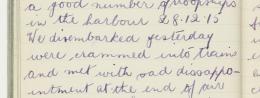 a good number of troopships
in the harbour 28.12.15
We disembarked yesterday
were crammed into train
and met with sad dissappo-
intment at the end of our